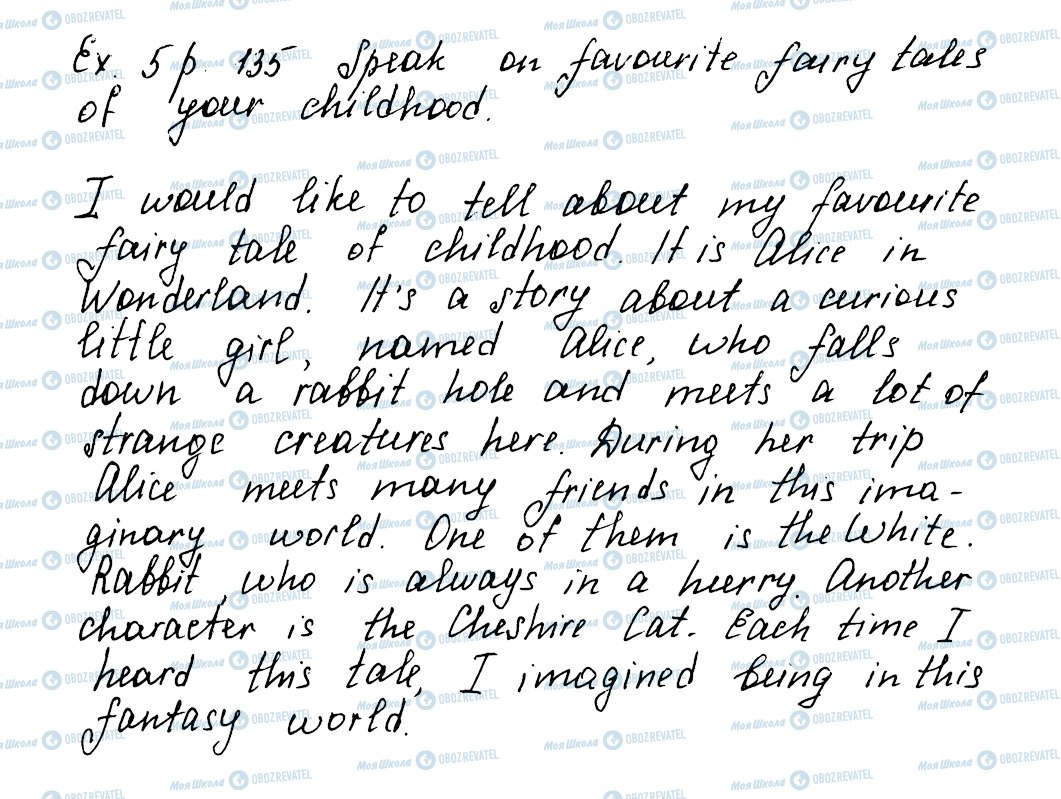 Ex. 5 p. 135 Speak on favourite fairy tales
of your childhood.
I would like to tell about my favourite
fairy tale of childhood. It is Alice in
Wonderland. It's a story about a curious
little girl, named Alice, who falls
down a rabbit hole and meets a lot of
strange creatures here. During her trip
Alice meets many friends in this ima-
ginary world. One of them is the White.
Rabbit, who is always in a hurry. Another
character is the Cheshire Cat. Each time I
heard this tale, I imagined being in this
fantasy world.
МОЯ ШКОЛА OBOZREVATEL